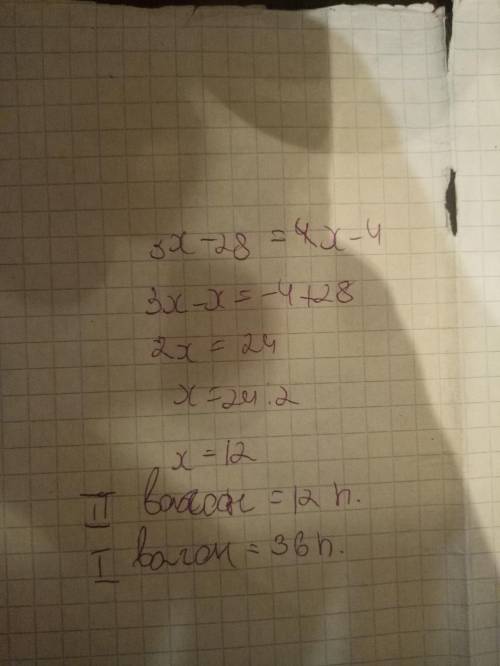 3x-28=x-4
3x-x=-4+28
2x=24
x=24.2
x=12
II вагон=12 п.
I вагон=36 п.